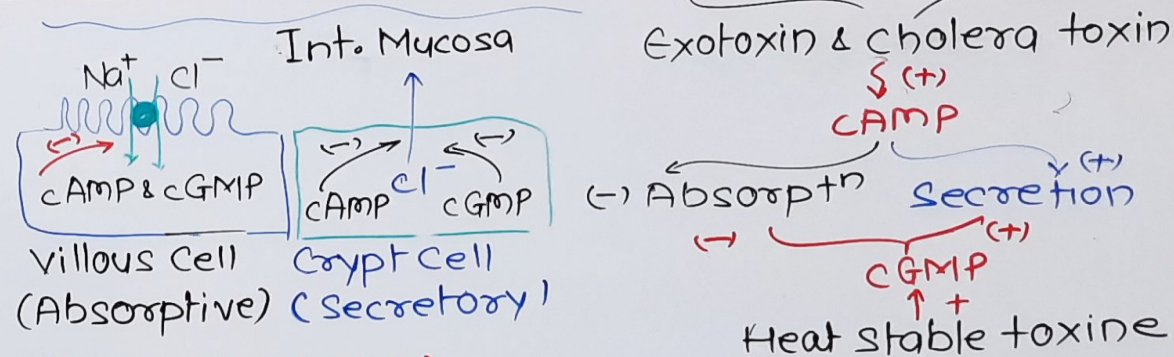 Int. Mucosa
Na+ Cl-
(-)
cAMP & cGMP
Villous Cell
(Absorptive)
(-) (-)
cAMP Cl- cGMP
Crypt Cell
(Secretory)
Exotoxin & cholera toxin
(+)
cAMP
(+)
(-) Absorptn Secretion
(-) (+)
cGMP
+
Heat stable toxine